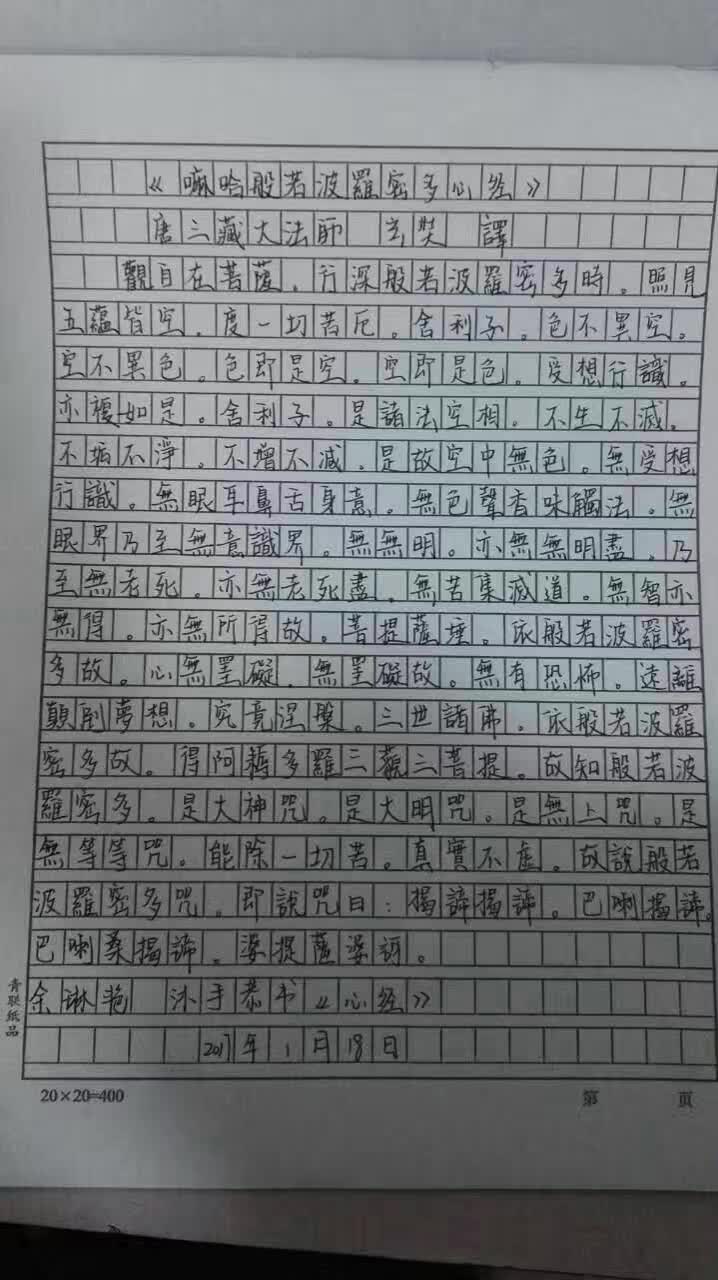 《嘛哈般若波羅密多心经》
唐三藏大法師 玄奘 譯
觀自在菩薩。行深般若波羅密多時。照見
五蘊皆空。度一切苦厄。舍利子。色不異空。
空不異色。色即是空。空即是色。受想行識。
亦複如是。舍利子。是諸法空相。不生不滅。
不垢不淨。不增不減。是故空中無色。無受想
行識。無眼耳鼻舌身意。無色聲香味觸法。無
眼界乃至無意識界。無無明。亦無無明盡。乃
至無老死。亦無老死盡。無苦集滅道。無智亦
無得。亦無所得故。菩提薩埵。依般若波羅密
多故。心無罣礙。無罣礙故。無有恐怖。遠離
顛倒夢想。究竟涅槃。三世諸佛。依般若波羅
密多故。得阿耨多羅三藐三菩提。故知般若波
羅密多。是大神咒。是大明咒。是無上咒。是
無等等咒。能除一切苦。真實不虛。故說般若
波羅密多咒。即說咒曰：揭諦揭諦。巴喇揭諦。
巴喇桑揭諦。婆提薩婆訶。
余琳艳 沐手恭书《心经》
2017年1月18日
青联纸品
20×20=400 第 頁